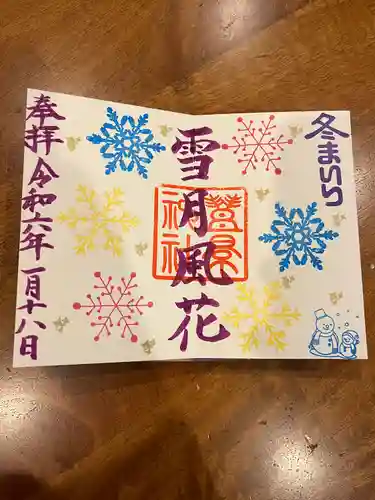 冬まいり
雪月風花
奉拝 令和六年 一月十八日